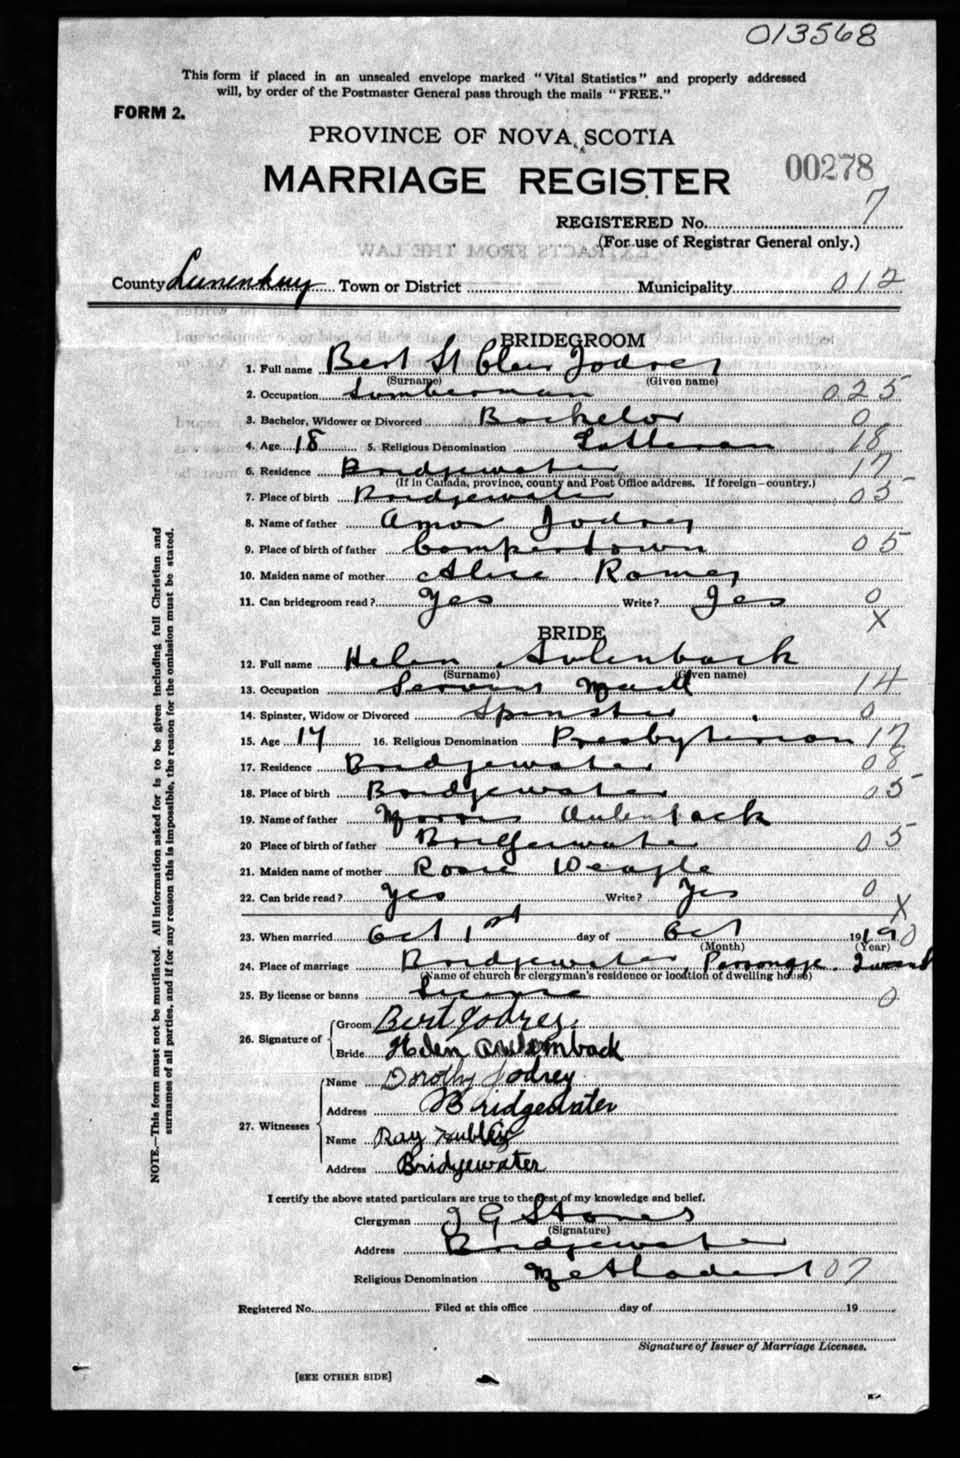 013568
This form if placed in an unsealed envelope marked "Vital Statistics" and properly addressed
will, by order of the Postmaster General pass through the mails "FREE."
FORM 2.
PROVINCE OF NOVA SCOTIA
MARRIAGE REGISTER 00278
REGISTERED No. 7
(For use of Registrar General only.)
EXTRACTS FROM THE LAW
County Lunenburg Town or District Municipality 012
BRIDEGROOM
1. Full name Bert St Clair Jodrey
(Surname) (Given name)
2. Occupation Lumberman 025
3. Bachelor, Widower or Divorced Bachelor 0
4. Age 18 5. Religious Denomination Lutheran 18
6. Residence Bridgewater 17
(If in Canada, province, county and Post Office address. If foreign—country.)
7. Place of birth Bridgewater 05
8. Name of father Amos Jodrey
9. Place of birth of father 05
10. Maiden name of mother Alice Romey
11. Can bridegroom read? Yes Write? Yes 0
X
BRIDE
12. Full name Helen Aulenback
(Surname) (Given name)
13. Occupation Servant Maid 14
14. Spinster, Widow or Divorced Spinster 0
15. Age 17 16. Religious Denomination Presbyterian 17
17. Residence Bridgewater 08
18. Place of birth Bridgewater 05
19. Name of father Aulenback
20 Place of birth of father Bridgewater 05
21. Maiden name of mother Rosie Weagle
22. Can bride read? Yes Write? Yes 0
X
23. When married Oct 1st day of Oct 19
(Month) (Year)
24. Place of marriage Bridgewater, Parsonage.
(Name of church or clergyman's residence or location of dwelling house)
25. By license or banns License 0
26. Signature of Groom Bert Jodrey.
Bride Helen Aulemback
27. Witnesses Name Dorothy Jodrey
Address Bridgewater
Name Ray
Address Bridgewater
I certify the above stated particulars are true to the best of my knowledge and belief.
Clergyman J G
(Signature)
Address Bridgewater
Religious Denomination Methodist 07
Registered No. Filed at this office day of 19
Signature of Issuer of Marriage Licenses.
[SEE OTHER SIDE]
NOTE.—This form must not be mutilated. All information asked for is to be given including full Christian and
surnames of all parties, and if for any reason this is impossible, the reason for the omission must be stated.